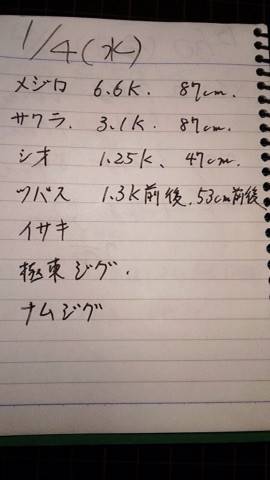 1/4(水)
メジロ 6.6K. 87cm.
サワラ. 3.1K. 87cm.
シオ 1.25K、47cm.
ツバス 1.3K前後、53cm前後、
イサキ
極東ジグ.
ナムジグ